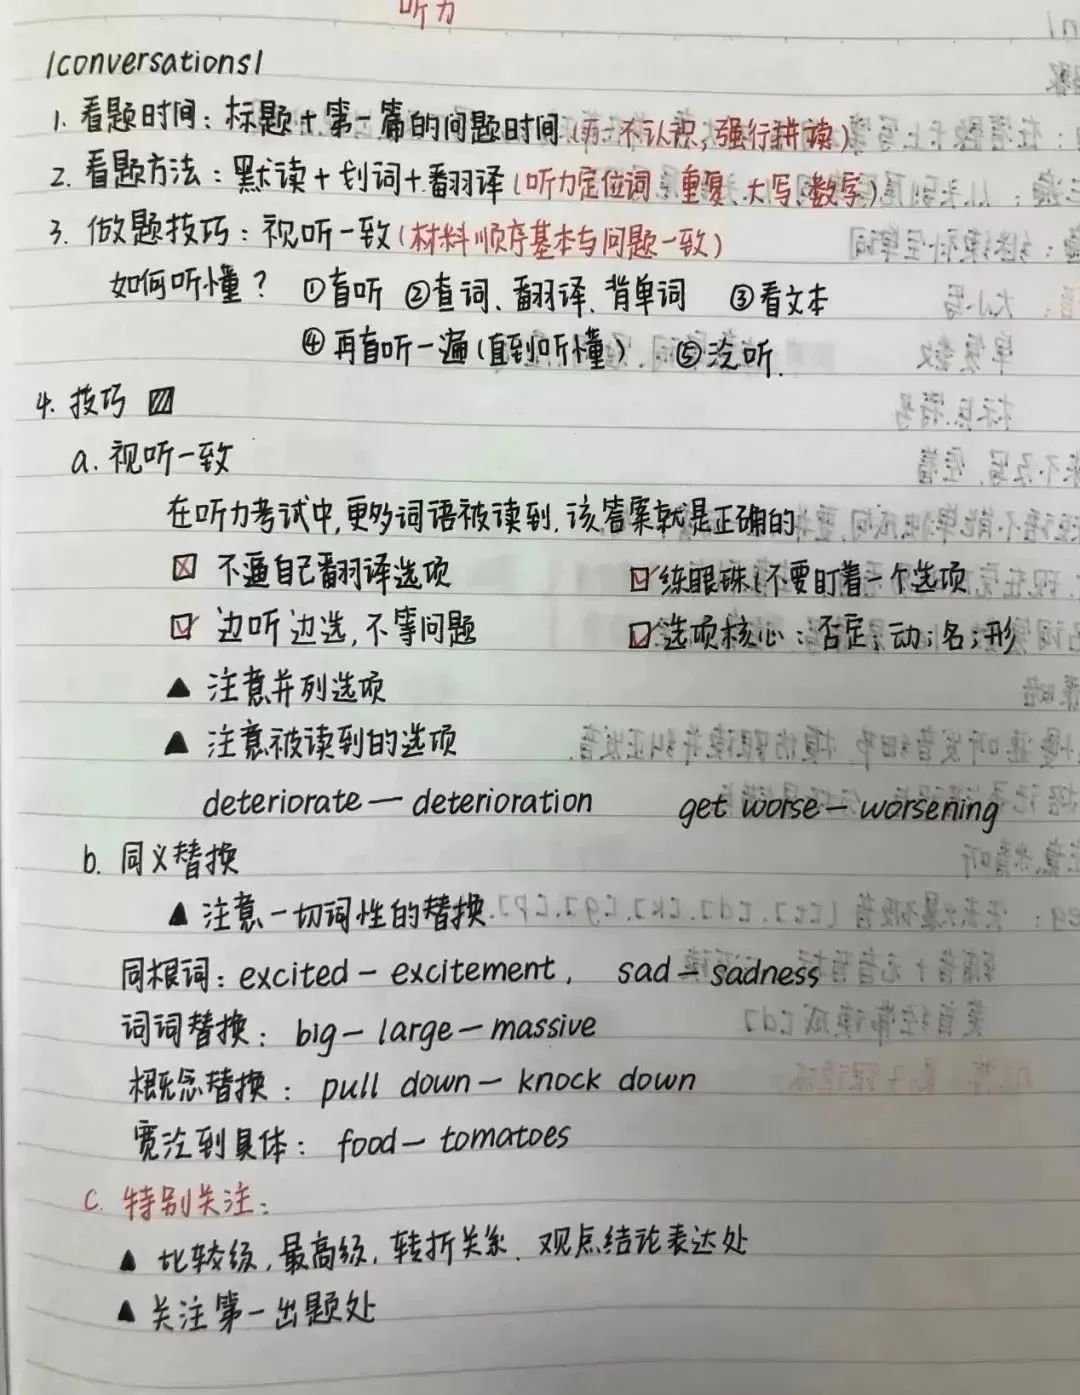 听力
/conversations/
1. 看题时间：标题+第一篇的问题时间(万一不认识,强行拼读)
2. 看题方法：默读+划词+翻译(听力定位词、重复、大写、数字)
3. 做题技巧：视听一致(材料顺序基本与问题一致)
如何听懂？ ①盲听 ②查词、翻译、背单词 ③看文本
④再盲听一遍(直到听懂) ⑤泛听.
4. 技巧
a. 视听一致
在听力考试中,更多词语被读到,该答案就是正确的
☒ 不逼自己翻译选项 ☑ 练眼珠(不要盯着一个选项
☑ 边听边选,不等问题 ☑ 选项核心：否定;动;名;形
▲ 注意并列选项
▲ 注意被读到的选项
deteriorate — deterioration get worse — worsening
b. 同义替换
▲ 注意一切词性的替换.
同根词：excited — excitement, sad — sadness
词词替换：big — large — massive
概念替换：pull down — knock down
宽泛到具体：food — tomatoes
c. 特别关注：
▲ 比较级,最高级,转折关系、观点结论表达处
▲ 关注第一出题处